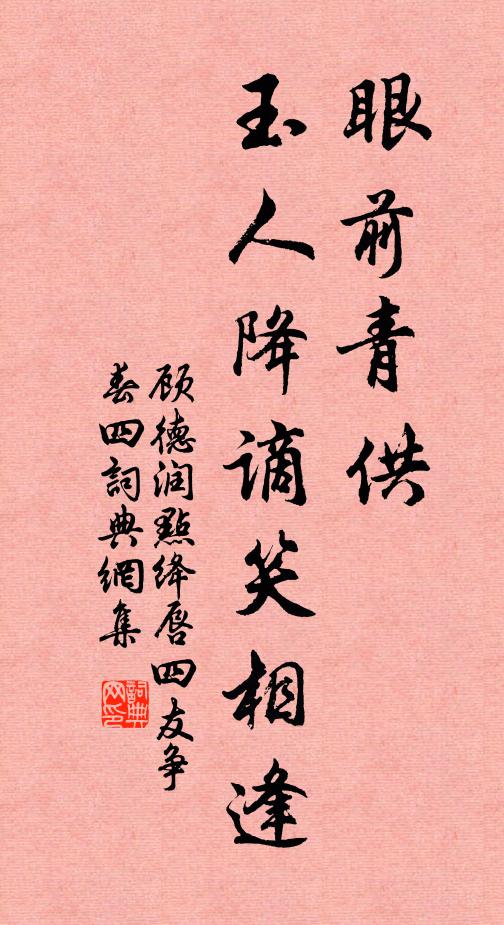 眼前青供
玉人降謫笑相逢
顾德润點绛唇四友争
春四詞典網集
詞典网印